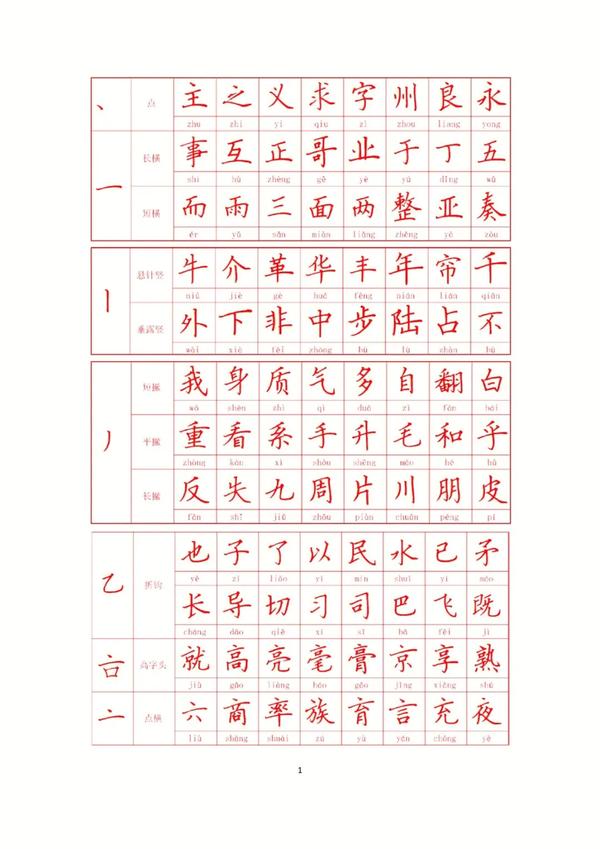 、 点 主 之 义 求 字 州 良 永
zhǔ zhī yì qiú zì zhōu liáng yǒng
一 长横 事 互 正 哥 业 于 丁 五
shì hù zhèng gē yè yú dīng wǔ
短横 而 雨 三 面 两 整 亚 奏
ér yǔ sān miàn liǎng zhěng yà zòu
丨 悬针竖 牛 介 革 华 丰 年 帘 千
niú jiè gé huá fēng nián lián qiān
垂露竖 外 下 非 中 步 陆 占 不
wài xià fēi zhōng bù lù zhàn bù
丿 短撇 我 身 质 气 多 自 翻 白
wǒ shēn zhì qì duō zì fān bái
平撇 重 看 系 手 升 毛 和 乎
zhòng kàn xì shǒu shēng máo hé hū
长撇 反 失 九 周 片 川 朋 皮
fǎn shī jiǔ zhōu piàn chuān péng pí
乙 折钩 也 子 了 以 民 水 已 矛
yě zǐ liǎo yǐ mín shuǐ yǐ máo
长 导 切 习 司 巴 飞 既
cháng dǎo qiē xí sī bā fēi jì
𠮛 高字头 就 高 亮 毫 膏 京 享 熟
jiù gāo liàng háo gāo jīng xiǎng shú
亠 点横 六 商 率 族 育 言 充 夜
liù shāng shuài zú yù yán chōng yè
1